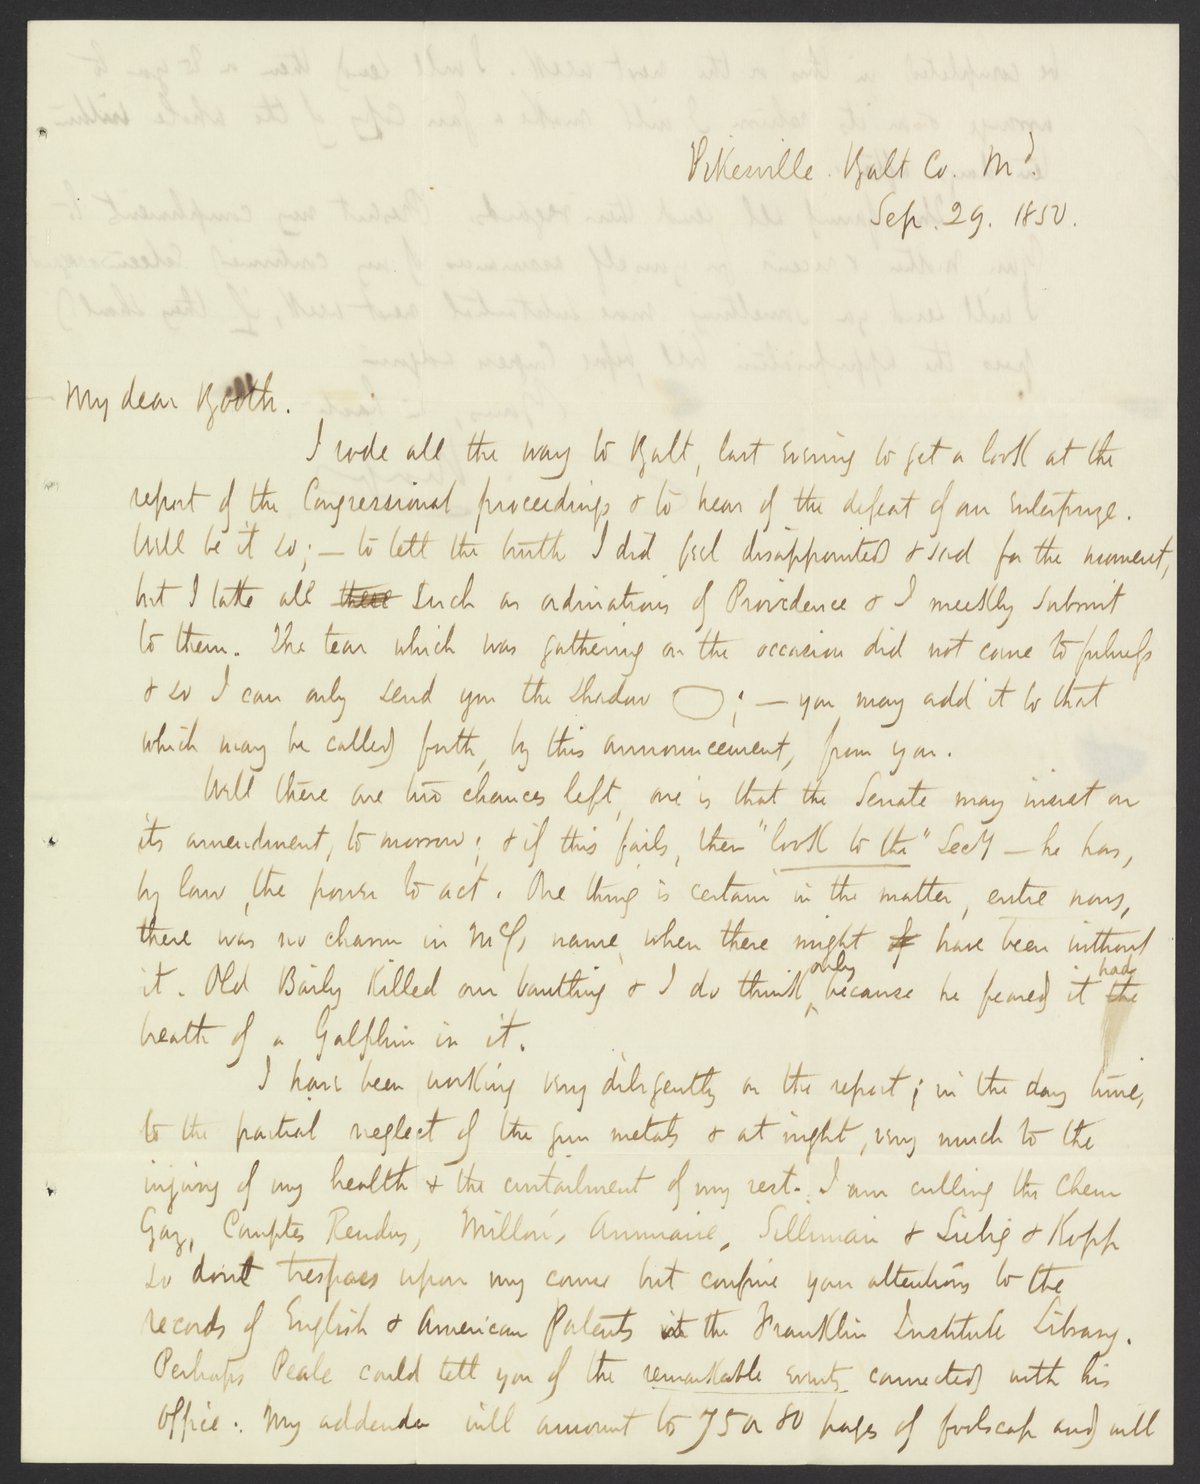 Pikesville. Balt Co. Md.
Sep. 29. 1850.
My dear Booth.
I rode all the way to Balt, last evening to get a look at the
report of the Congressional proceedings & to hear of the defeat of our Enterprize.
Well be it so; — to tell the truth I did feel disappointed & sad for the moment,
but I take all these such as ordinations of Providence & I meekly submit
to them. The tear which was gathering on the occasion did not come to fulness
& so I can only send you the shadow ; — you may add it to that
which may be called forth, by this announcement, from you.
Well there are two chances left, one is that the Senate may insist on
its amendment, to morrow; & if this fails, then "look to the" Secy — he has,
by law, the power to act. One thing is certain in the matter, entre nous,
there was no charm in McC's name, when there might have been without
it. Old Baily killed our bantling & I do think only because he feared it had the
breath of a Galphin in it.
I have been working very diligently on the report; in the day time,
to the partial neglect of the gun metals & at night, very much to the
injury of my health & the curtailment of my rest. I am culling the Chem
Gaz, Comptes Rendus, Millon's Annuaire, Silliman & Liebig & Kopp
so dont trespass upon my corner but confine your attentions to the
records of English & American Patents in the Franklin Institute Library.
Perhaps Peale could tell you of the remarkable events connected with his
office. My addenda will amount to 75 or 80 pages of foolscap and will